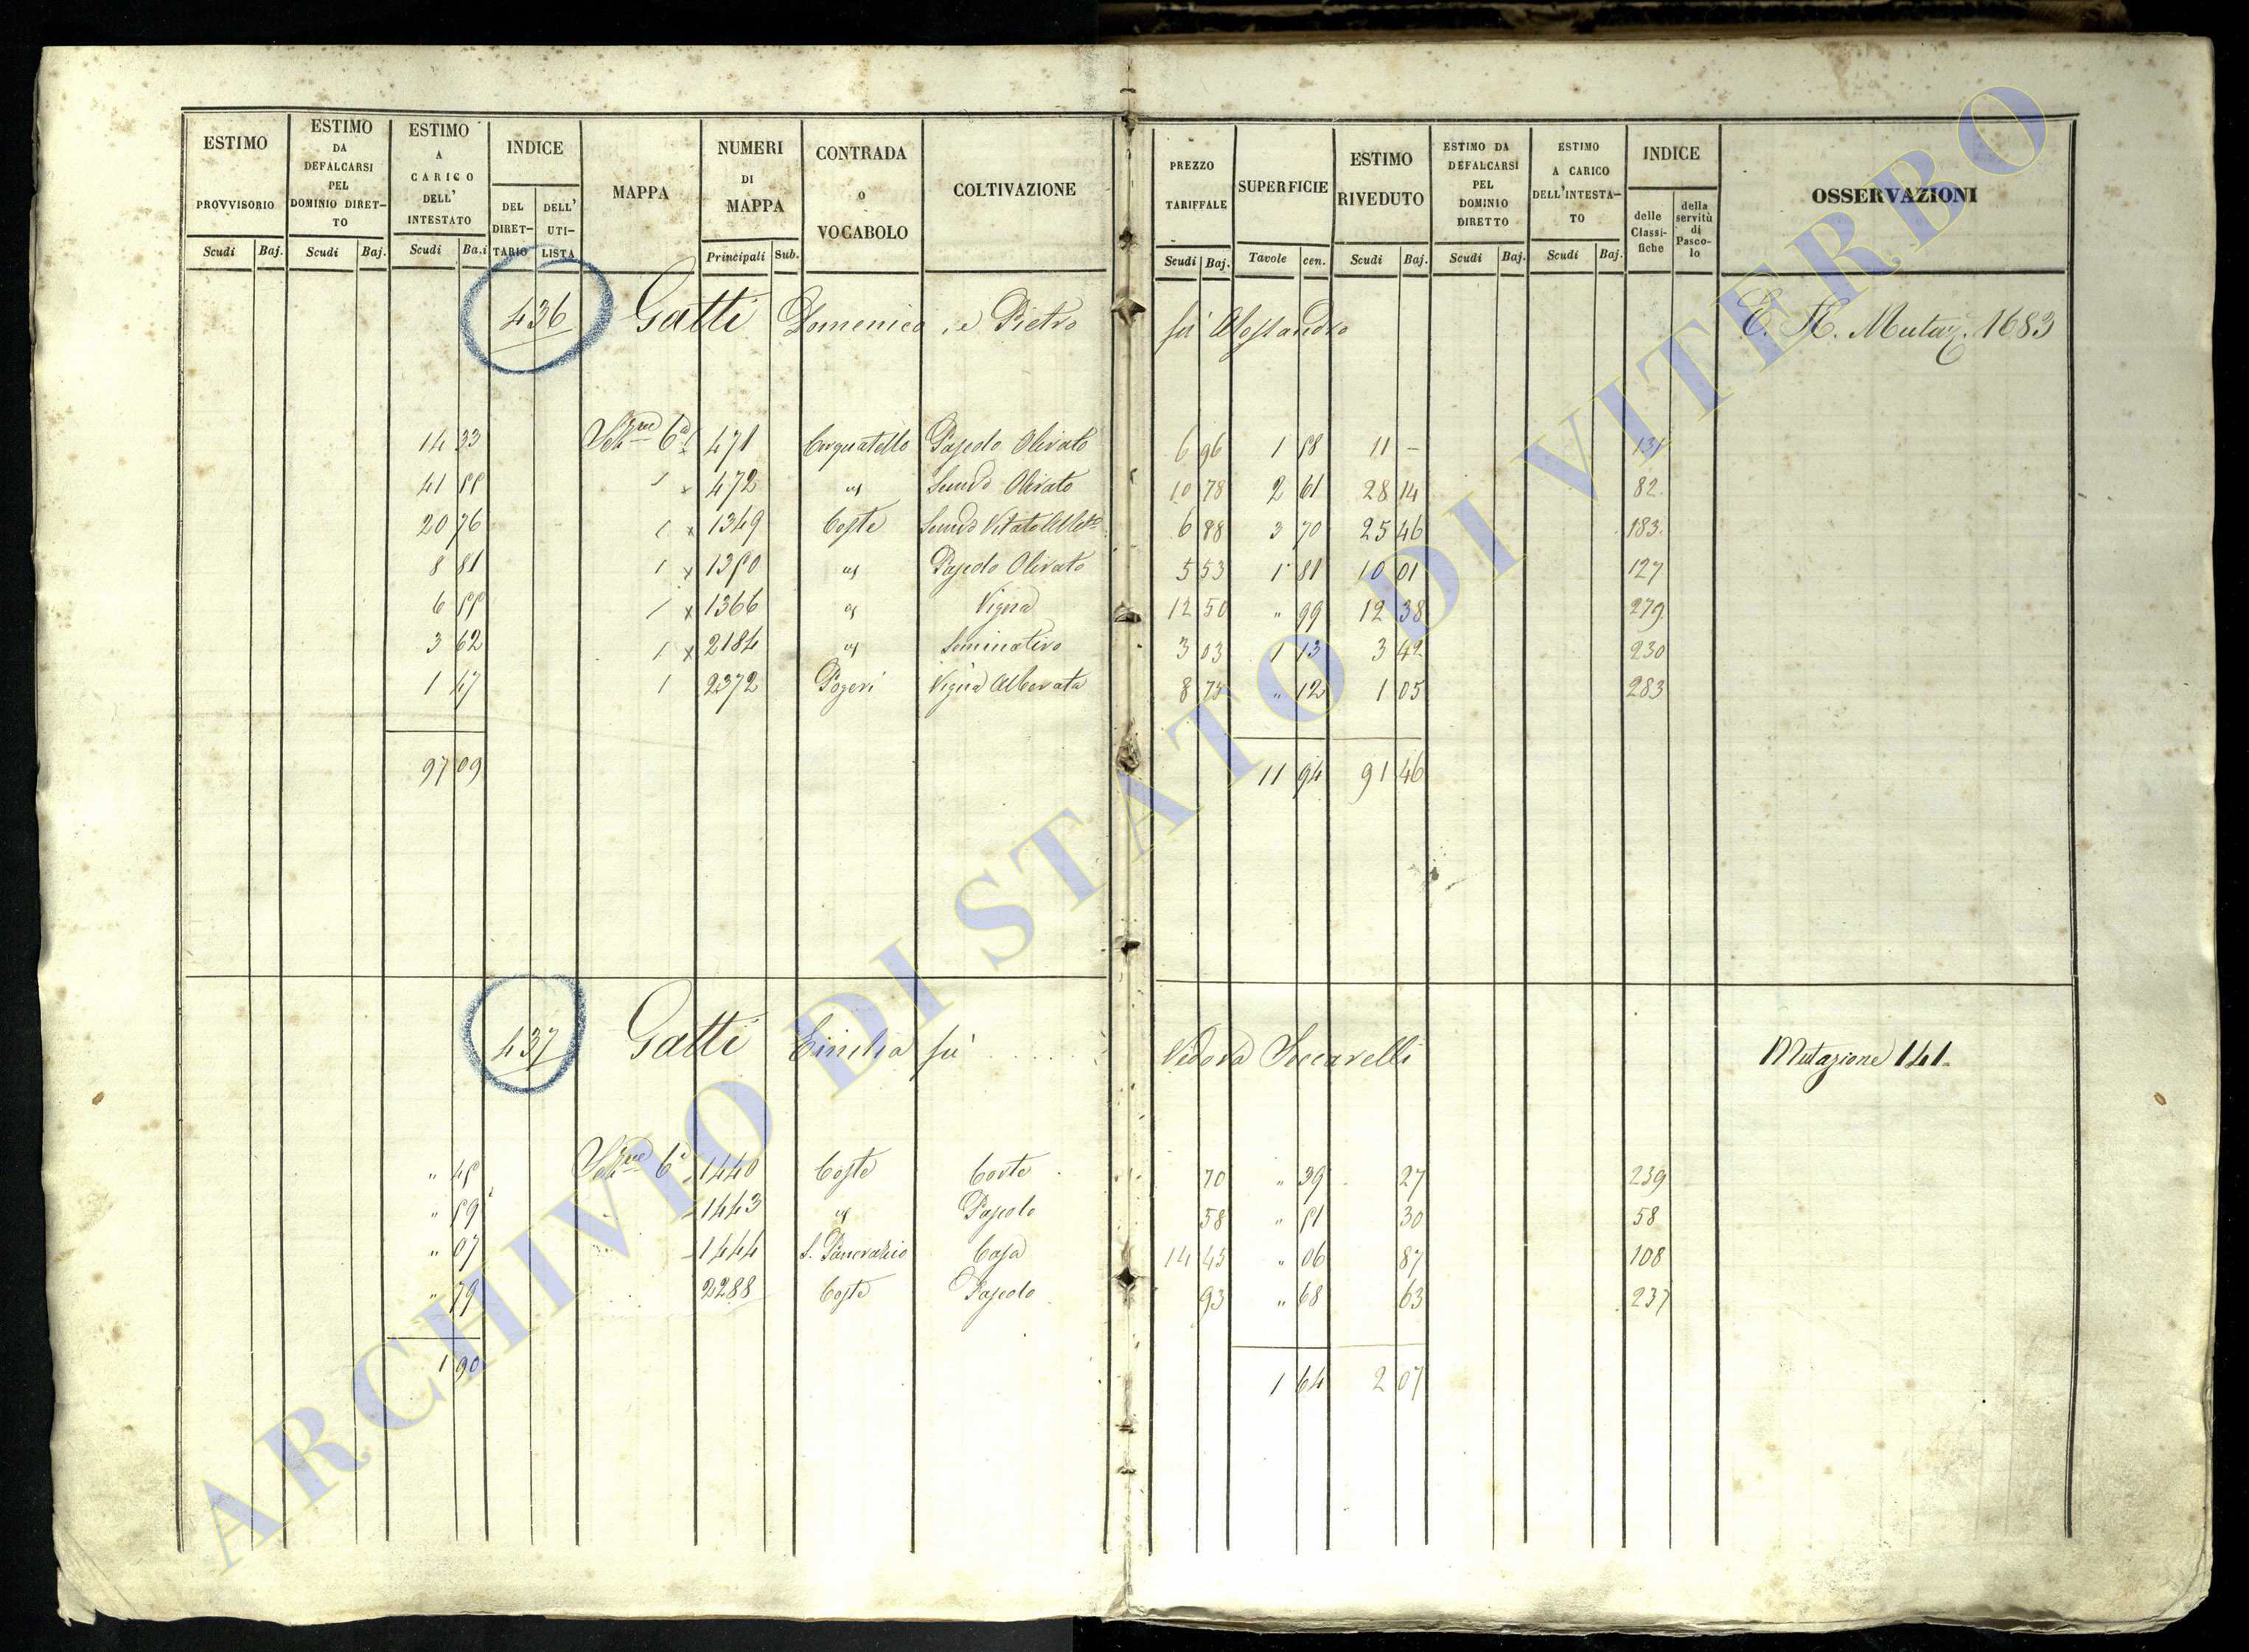 ESTIMO PROVVISORIO Scudi Baj.
ESTIMO DA DEFALCARSI PEL DOMINIO DIRET-TO Scudi Baj.
ESTIMO A CARICO DELL' INTESTATO Scudi Ba.i
INDICE DEL DIRET-TARIO DELL' UTI-LISTA
MAPPA
NUMERI DI MAPPA Principali Sub.
CONTRADA O VOCABOLO
COLTIVAZIONE
PREZZO TARIFFALE Scudi Baj.
SUPERFICIE Tavole cen.
ESTIMO RIVEDUTO Scudi Baj.
ESTIMO DA DEFALCARSI PEL DOMINIO DIRETTO Scudi Baj.
ESTIMO A CARICO DELL'INTESTA-TO Scudi Baj.
INDICE delle Classi-fiche della servitù di Pasco-lo
OSSERVAZIONI
436 Gatti Domenico, e Pietro fu' Alessandro Mutaz. 1683
14 33 6a 471 Pascolo Olivato 6 96 1 58 11 — 131
41 55 472 Olivato 10 78 2 61 28 14 82
20 76 1349 Coste Vitato 6 88 3 70 25 46 183
8 81 1350 Pascolo Olivato 5 53 1 81 10 01 127
6 55 1366 Vigna 12 50 " 99 12 38 279
3 62 2184 Seminativo 3 03 1 13 3 42 230
1 47 2372 Pogeri Vigna Alberata 8 75 " 12 1 05 283
97 09 11 94 91 46
437 Gatti Emilia fu' Vedova Mutazione 141.
" 45 6a 1440 Coste Corte 70 " 39 27 239
" 59 1443 Pascolo 58 " 51 30 58
" 07 1444 S. Pancrazio Casa 14 45 " 06 87 108
" 79 2288 Coste Pascolo 93 " 68 63 237
1 90 1 64 2 07
ARCHIVIO DI STATO DI VITERBO